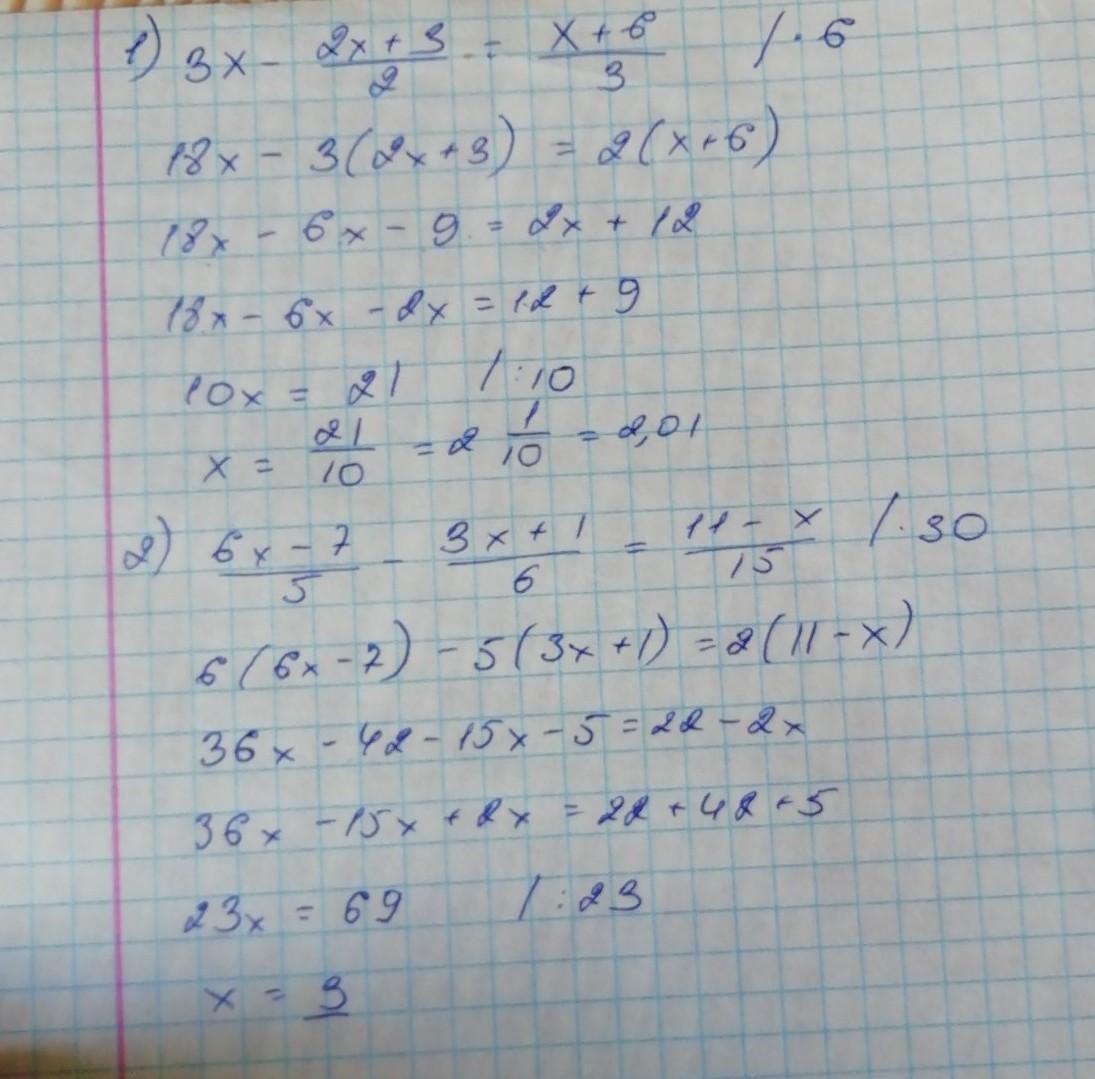 1) 3x - \frac{2x+3}{2} = \frac{x+6}{3} /·6
18x - 3(2x+3) = 2(x+6)
18x - 6x - 9 = 2x + 12
18x - 6x - 2x = 12 + 9
10x = 21 /:10
x = \frac{21}{10} = 2\frac{1}{10} = 2,01
2) \frac{6x-7}{5} - \frac{3x+1}{6} = \frac{11-x}{15} /·30
6(6x-7) - 5(3x+1) = 2(11-x)
36x - 42 - 15x - 5 = 22 - 2x
36x - 15x + 2x = 22 + 42 + 5
23x = 69 /:23
x = 3